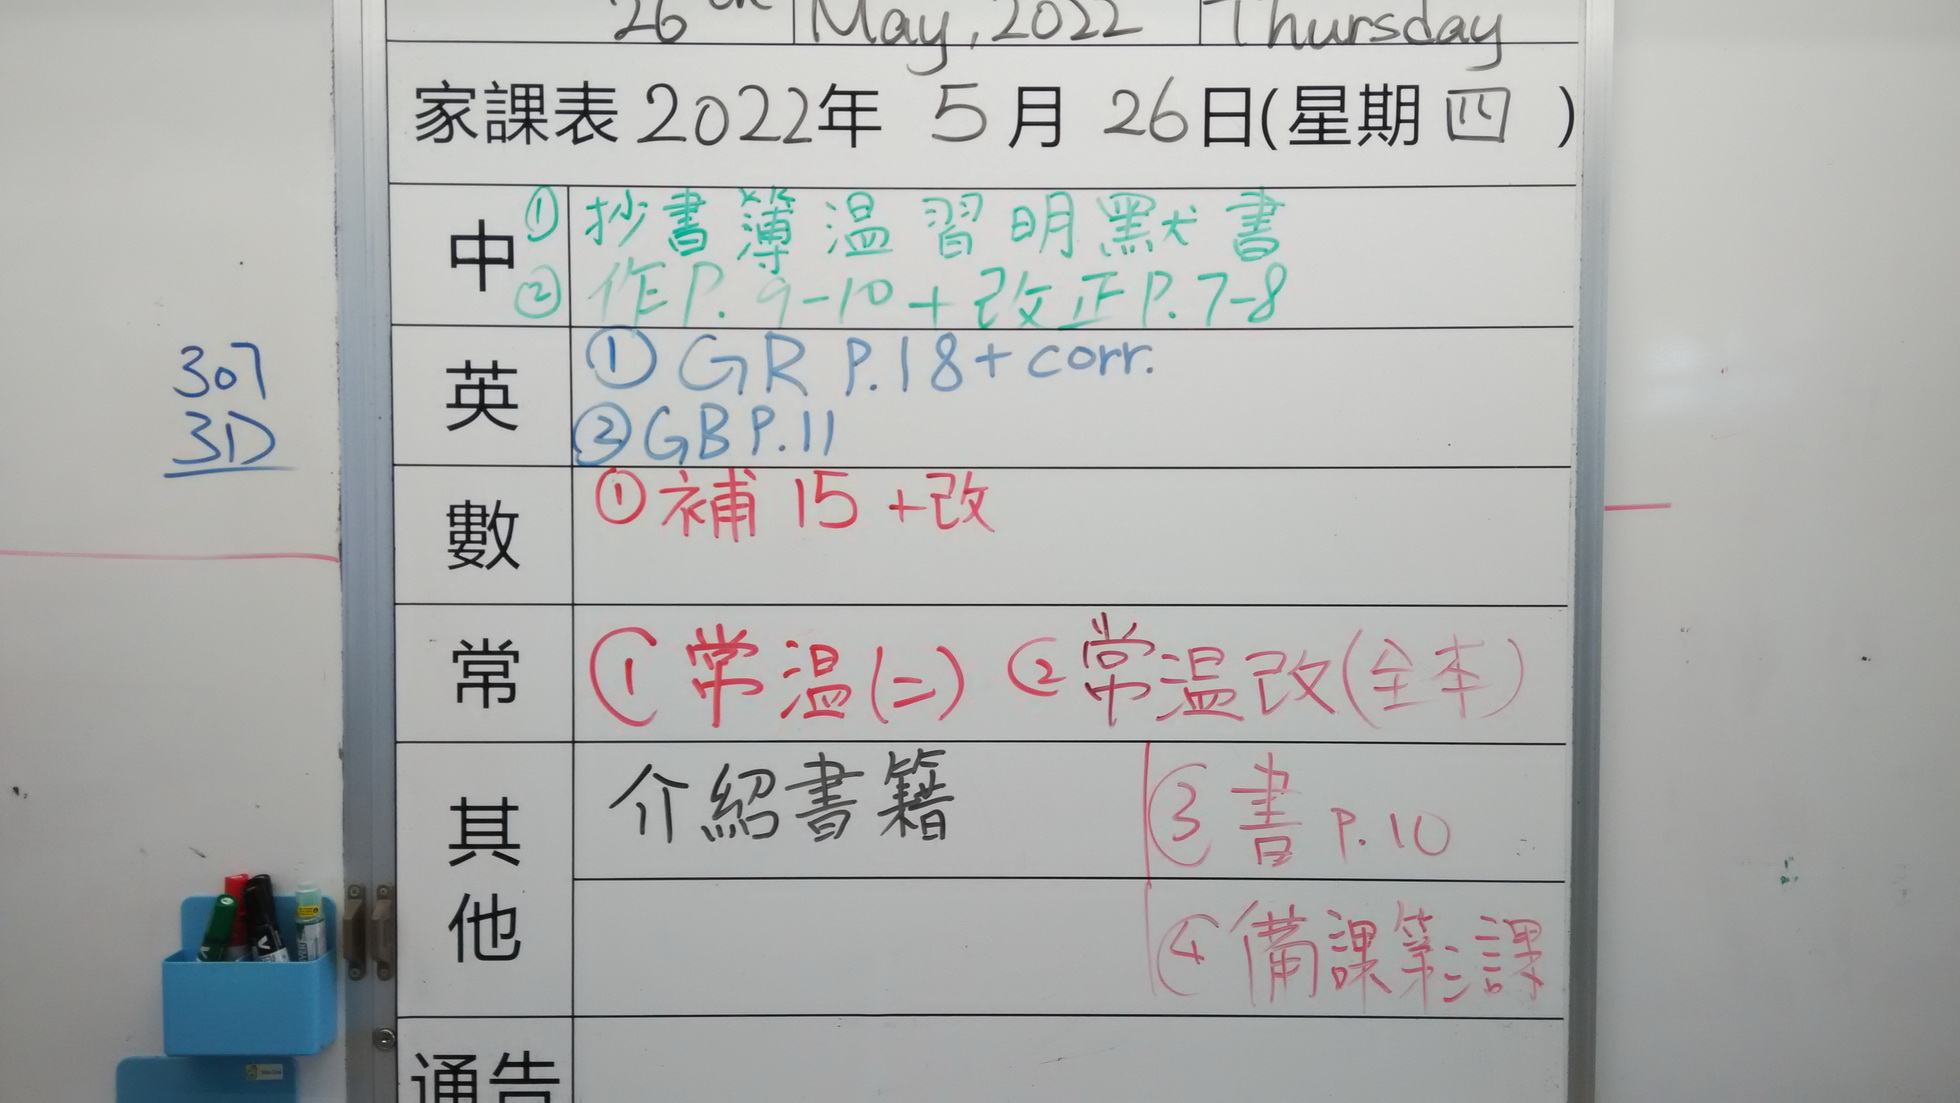 26th May, 2022 Thursday
家課表 2022年 5月 26日(星期四)
中 ① 抄書簿溫習明默書
② 作P. 9-10 + 改正P.7-8
英 ① GR P.18 + corr.
② GB P.11
307
3D
數 ① 補 15 + 改
常 ① 常溫(二) ② 常溫改(全本)
其他 介紹書籍 ③ 書 P.10
④ 備課第二課
通告